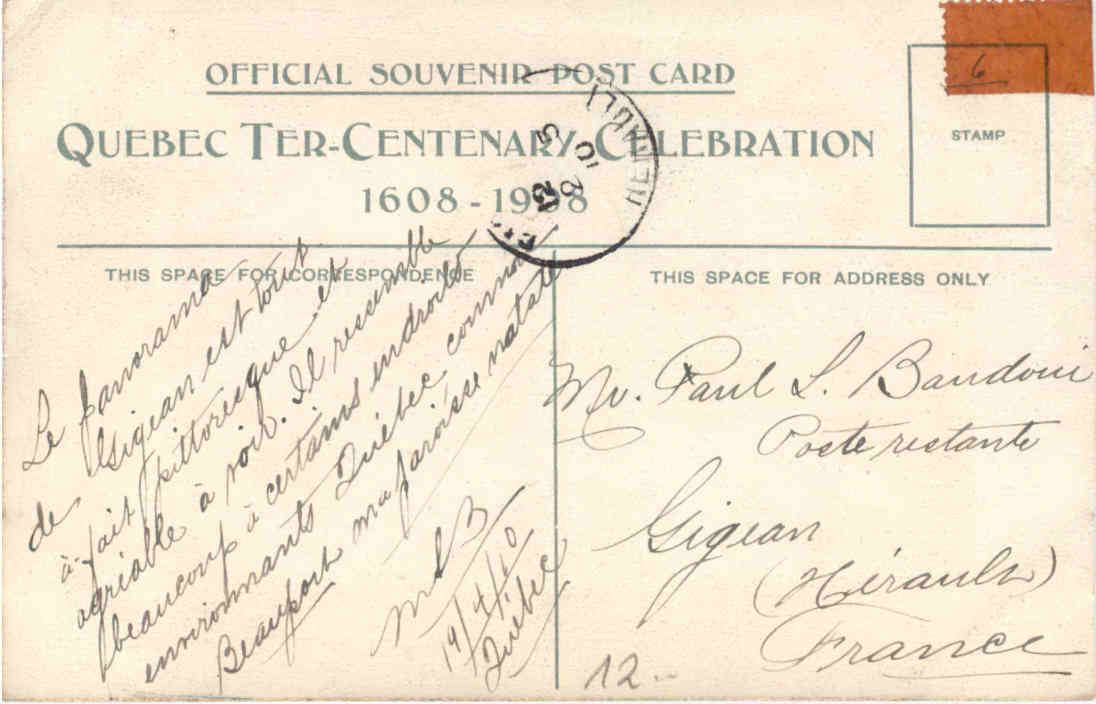 6
OFFICIAL SOUVENIR POST CARD
QUEBEC TER-CENTENARY CELEBRATION
1608-1908
STAMP
THIS SPACE FOR CORRESPONDENCE
THIS SPACE FOR ADDRESS ONLY
Le panorama
de Gigean est tout
à fait pittoresque et
agréable à voir. Il ressemble
beaucoup à certains endroits
environnants Québec, comme
Beauport ma paroisse natale
19/4/10
Québec
Mr. Paul L. Baudoin
Poste restante
Gigean
(Hérault)
France
12